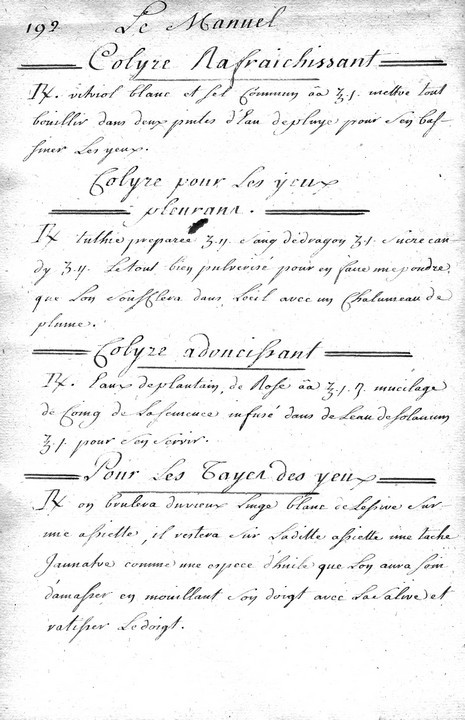 192 Le Manuel
Colyre Rafraichissant
℞. vitriol blanc et sel Commun āā ʒ.j. mettre tout
bouillir dans deux pintes d'Eau de pluye pour s'en bas-
siner Les yeux.
Colyre pour Les yeux
pleurans.
℞ tuthie preparée ʒ.ij. sang de dragon ʒ.j. sucre can-
dy ʒ.ij. Le tout bien pulverisé pour en faire une poudre
que L'on soufflera dans L'oeil avec un Chalumeau de
plume.
Colyre adoucissant
℞. Eaux de plantain, de Rose āā ʒ.j. mucilage
de Coing de La semence infusé dans de L'eau de solanum
ʒ.j. pour s'en servir.
Pour Les Tayes des yeux
℞ on brulera du vieux Linge blanc de Lessive sur
une assiette, il restera sur Laditte assiette une tache
Jaunatre comme une espece d'huile que L'on aura soin
d'amasser en mouillant son doigt avec La salive et
ratisser Le doigt.